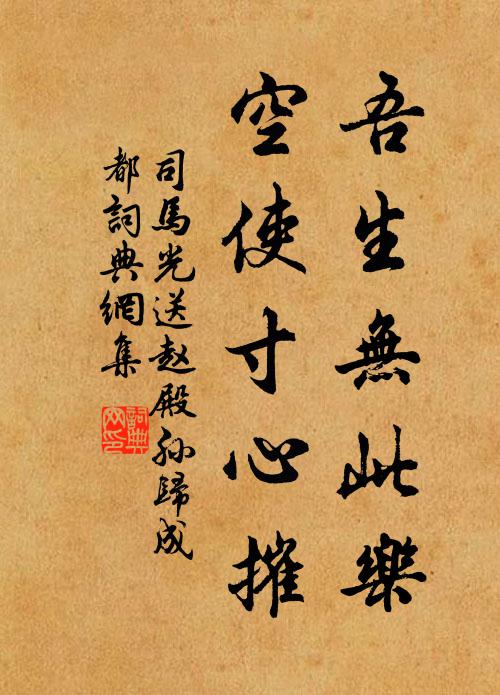 吾生無此樂
空使寸心摧
司馬光送赵殿孙歸成
都詞典網集
詞典网印